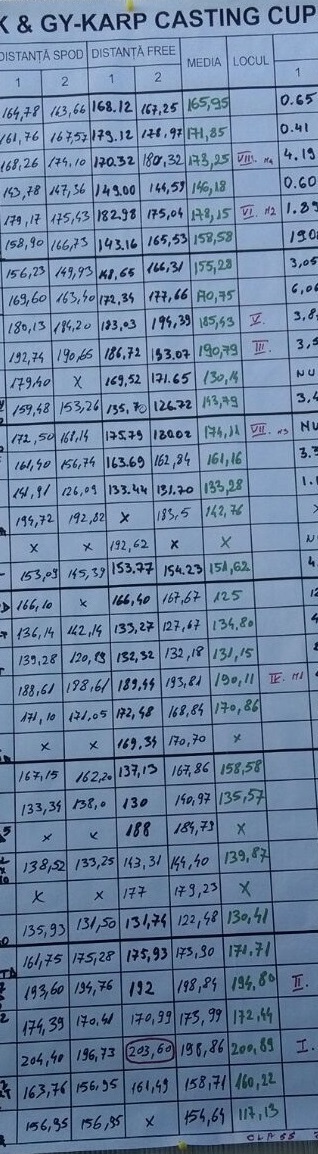 K & GY-KARP CASTING CUP
DISTANȚĂ SPOD DISTANȚĂ FREE MEDIA LOCUL
1 2 1 2 1
164,78 163,66 168.12 167,25 165,95 0.65
161,76 167,57 179.12 178,97 171,85 0.41
168,26 174,10 170.32 180,32 173,25 VIII. M4 4.19
143,78 147,36 149.00 144,59 146,18 0.60
179,17 175,43 182.98 175,04 178,15 VI. M2 1.89
158,90 166,73 143.16 165,53 158,58 190
156,23 149,93 148,65 166,31 155,28 3,05
169,60 163,40 172,34 177,66 170,75 6,0
180,13 184,20 183,03 194,39 185,43 V. 3,8
192,74 190,65 186,72 193.07 190,79 III. 3,5
179,40 X 169,52 171.65 130,14 NU
159,48 153,26 135,70 126.72 143,79 3,4
172,50 168,14 175.79 180.02 174,11 VII. M3 NU
161,40 156,74 163.69 162,84 161,16 3.3
141,91 126,09 133.44 131.70 133,28 1.
194,72 192,82 X 183,5 142,76
X X 192,62 X X N
153,09 145,39 153.77 154.23 151,62 4.
166,10 X 166,40 167,67 125 12
136,14 142,14 133,27 127,67 134,80
139,28 120,89 132,32 132,18 131,15
188,61 188,61 189,44 193,81 190,11 IV. M1
171,10 171,05 172,48 168,84 170,86
X X 169,34 170,70 X
167,15 162,20 137,13 167,86 158,58
133,34 138,0 130 140,97 135,57
X X 188 184,79 X
138,52 133,25 143,31 144,40 139,87
X X 177 179,23 X
135,93 131,50 131,74 122,48 130,41
161,75 175,28 175,93 173,90 171,71
193,60 194,76 192 198,84 194,80 II.
174,39 170,41 170,99 173,99 172,44
204,40 196,73 203,60 198,86 200,89 I.
163,76 156,95 161,49 158,71 160,22
156,95 156,95 X 154,64 117,13
CLASS